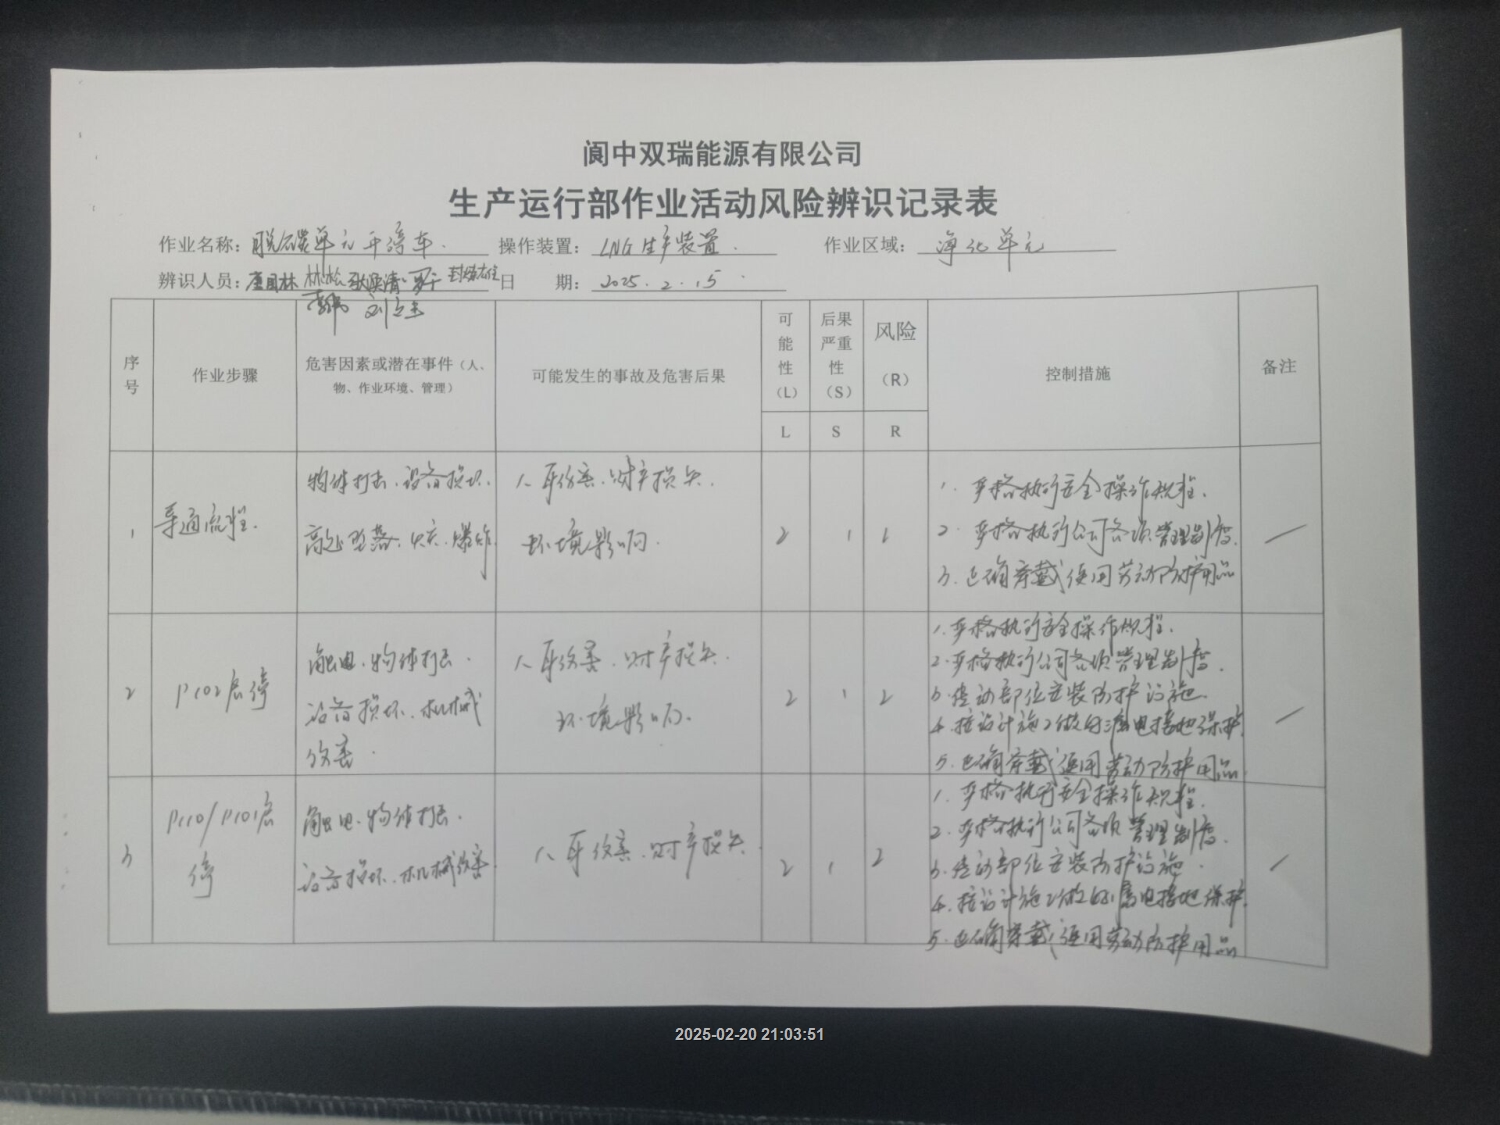 阆中双瑞能源有限公司
生产运行部作业活动风险辨识记录表
作业名称：脱碳单元开停车. 操作装置：LNG生产装置. 作业区域：净化单元
辨识人员： 林松 日 期：2025.2.15
序号 作业步骤 危害因素或潜在事件（人、物、作业环境、管理） 可能发生的事故及危害后果 可能性（L） 后果严重性（S） 风险（R） 控制措施 备注
L S R
1 导通流程. 物体打击、设备损坏、 人身伤害、财产损失、 2 1 1. 严格执行安全操作规程.
高处坠落、火灾、爆炸 环境影响. 2. 严格执行公司各项管理制度.
3. 正确穿戴使用劳动防护用品
2 P102启停 触电、物体打击、 人身伤害、财产损失、 2 1 2 1. 严格执行安全操作规程.
设备损坏、机械 环境影响. 2. 严格执行公司各项管理制度.
伤害. 3. 传动部位安装防护设施.
4. 按设计施工做好漏电接地保护.
5. 正确穿戴使用劳动防护用品
3 P110/P101启 触电、物体打击、 人身伤害、财产损失. 2 1 2 1. 严格执行安全操作规程.
停 设备损坏、机械伤害. 2. 严格执行公司各项管理制度.
3. 传动部位安装防护设施.
4. 按设计施工做好漏电接地保护.
5. 正确穿戴使用劳动防护用品
2025-02-20 21:03:51